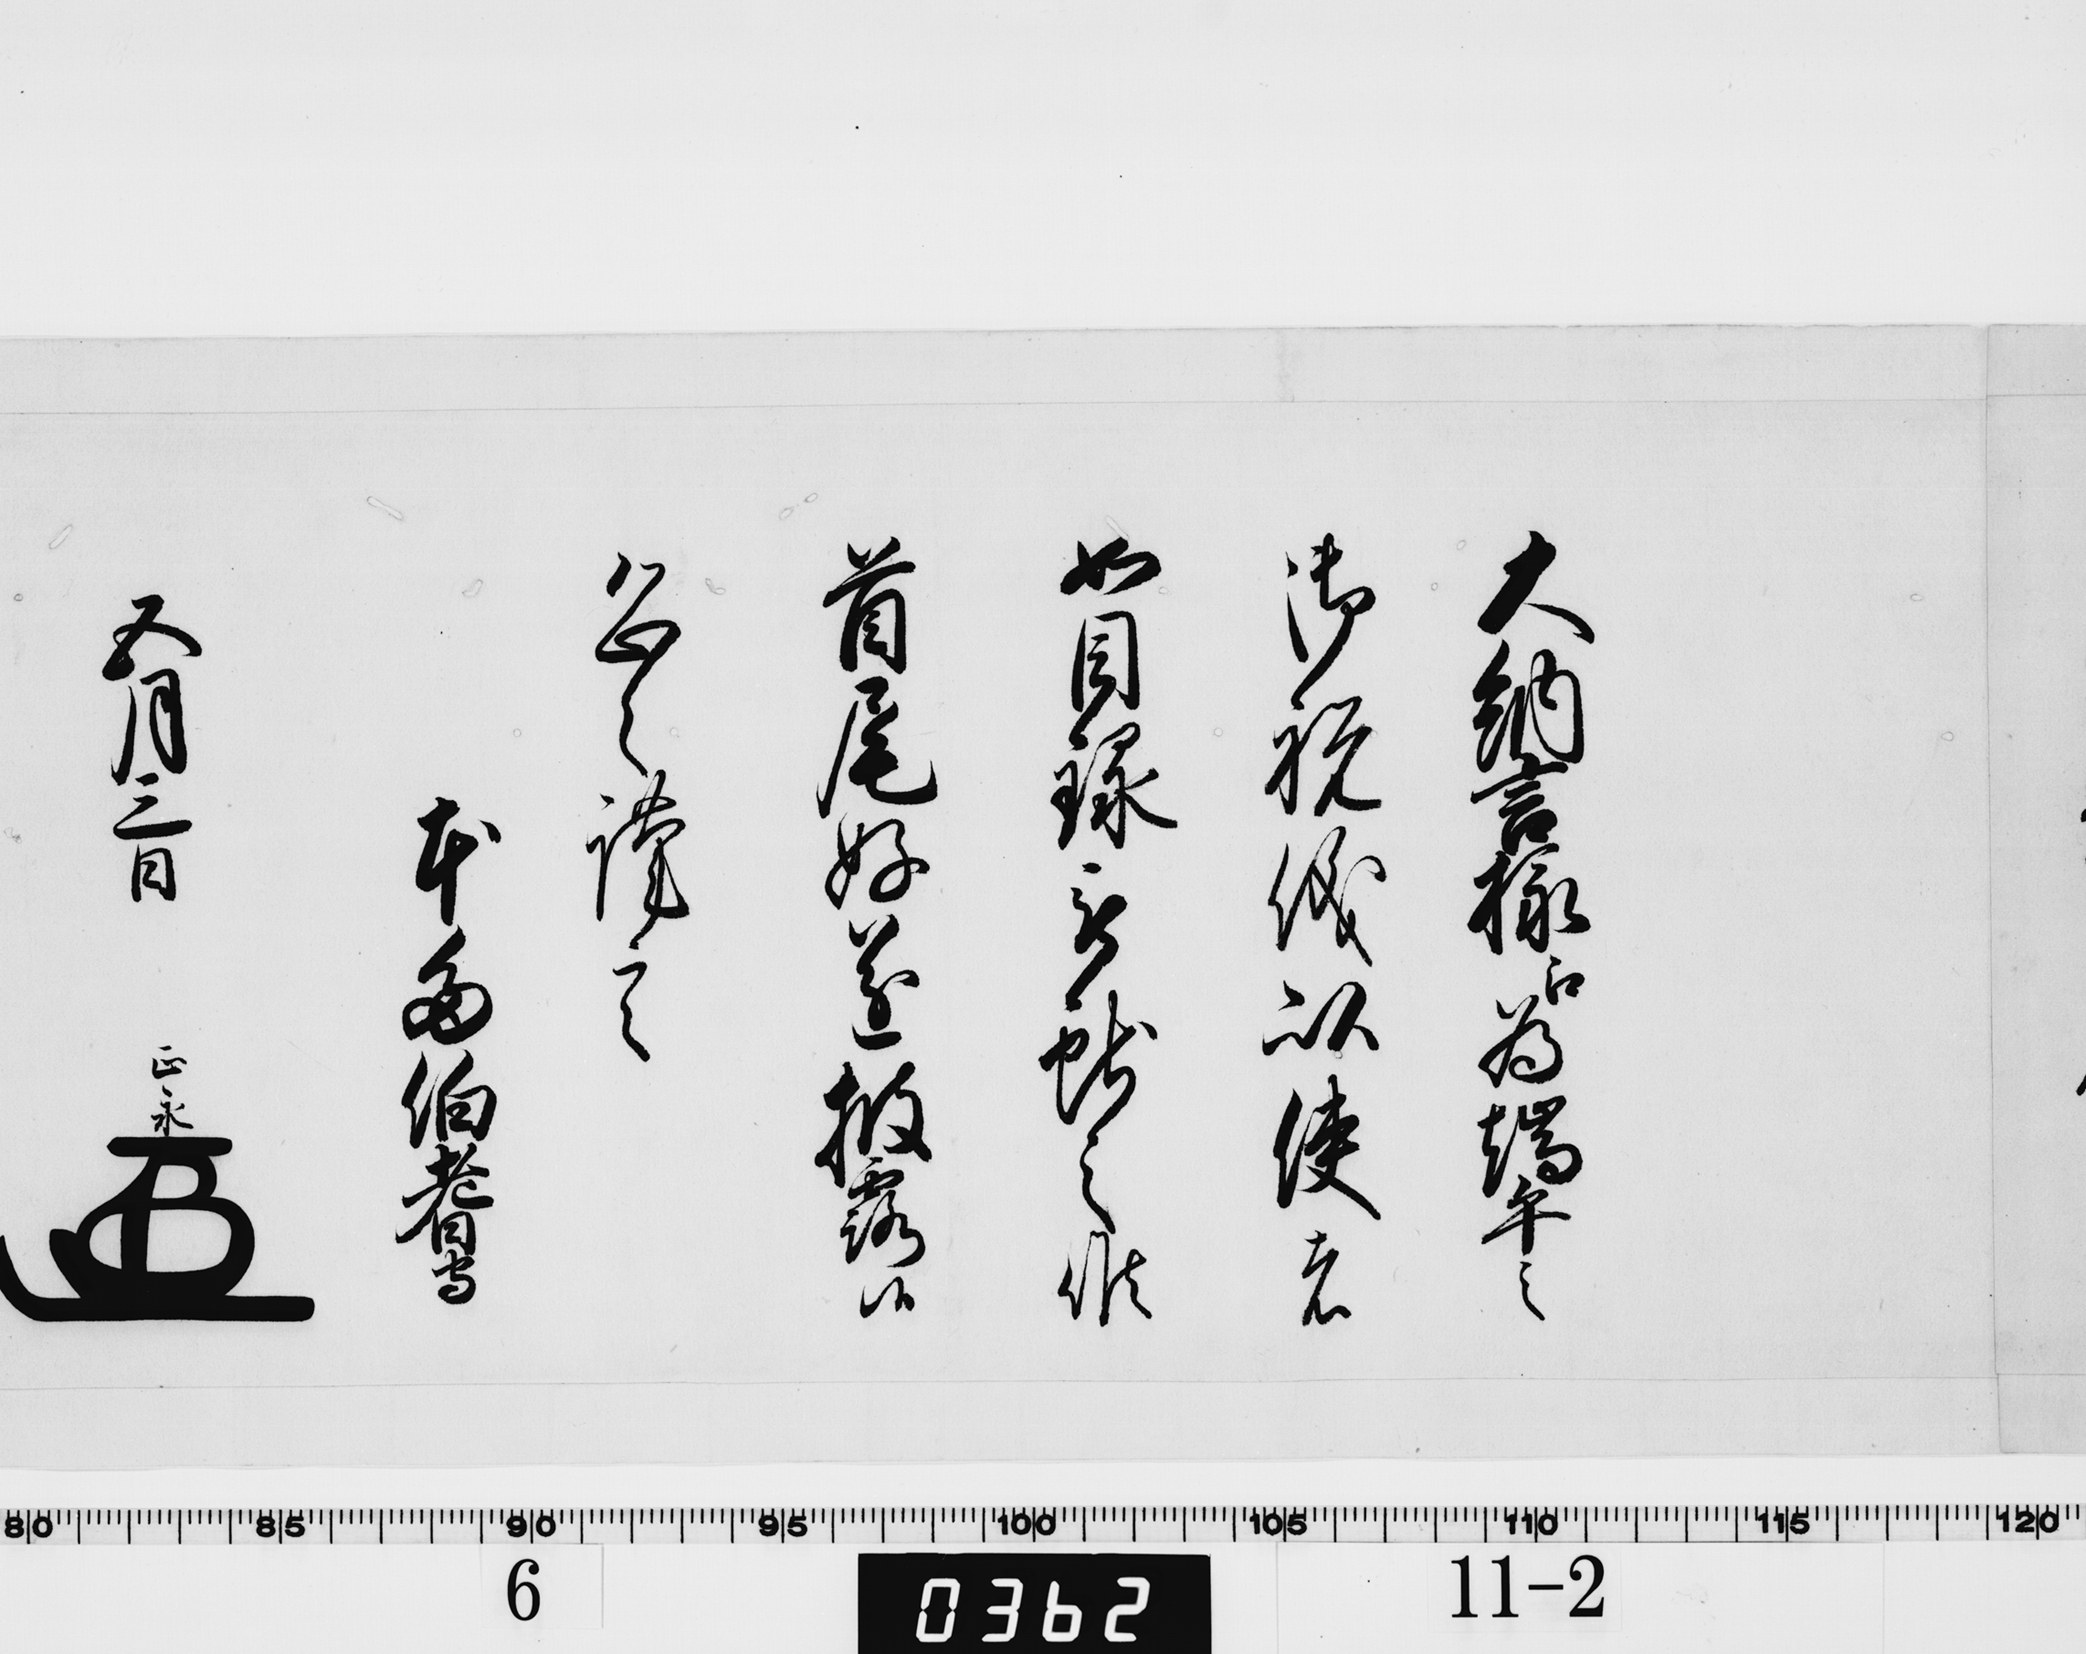 大納言様江為端午之
御祝儀以使者
如目録被献之候
首尾好遂披露候
恐々謹言
本多伯耆守
五月三日
正永
80 85 90 95 100 105 110 115 120
6 0362 11-2